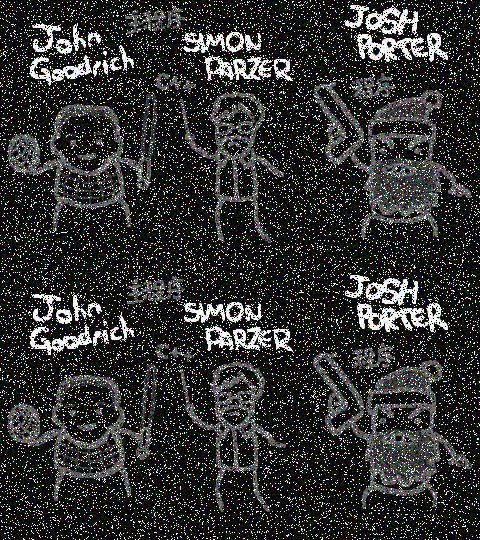 John
Goodrich
SIMON
PARZER
JOSH
PORTER
John
Goodrich
SIMON
PARZER
JOSH
PORTER